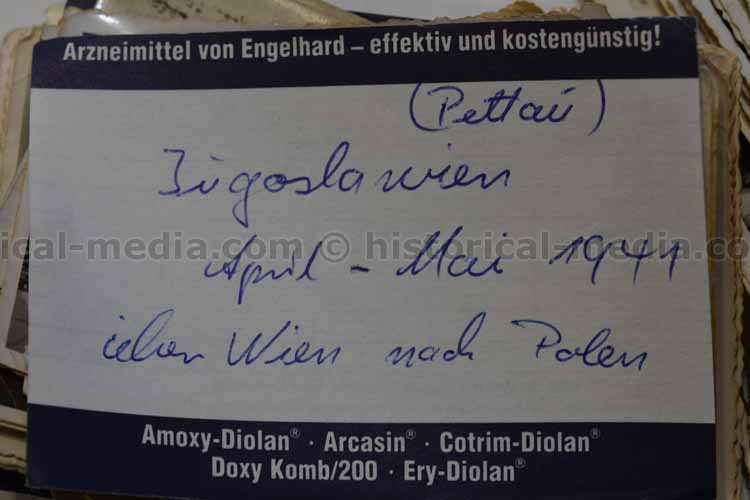 Arzneimittel von Engelhard – effektiv und kostengünstig!
(Pettau)
Jugoslawien
April – Mai 1941
ical-media.com © historical-media.co
über Wien nach Polen
Amoxy-Diolan® · Arcasin® · Cotrim-Diolan®
Doxy Komb/200 · Ery-Diolan®